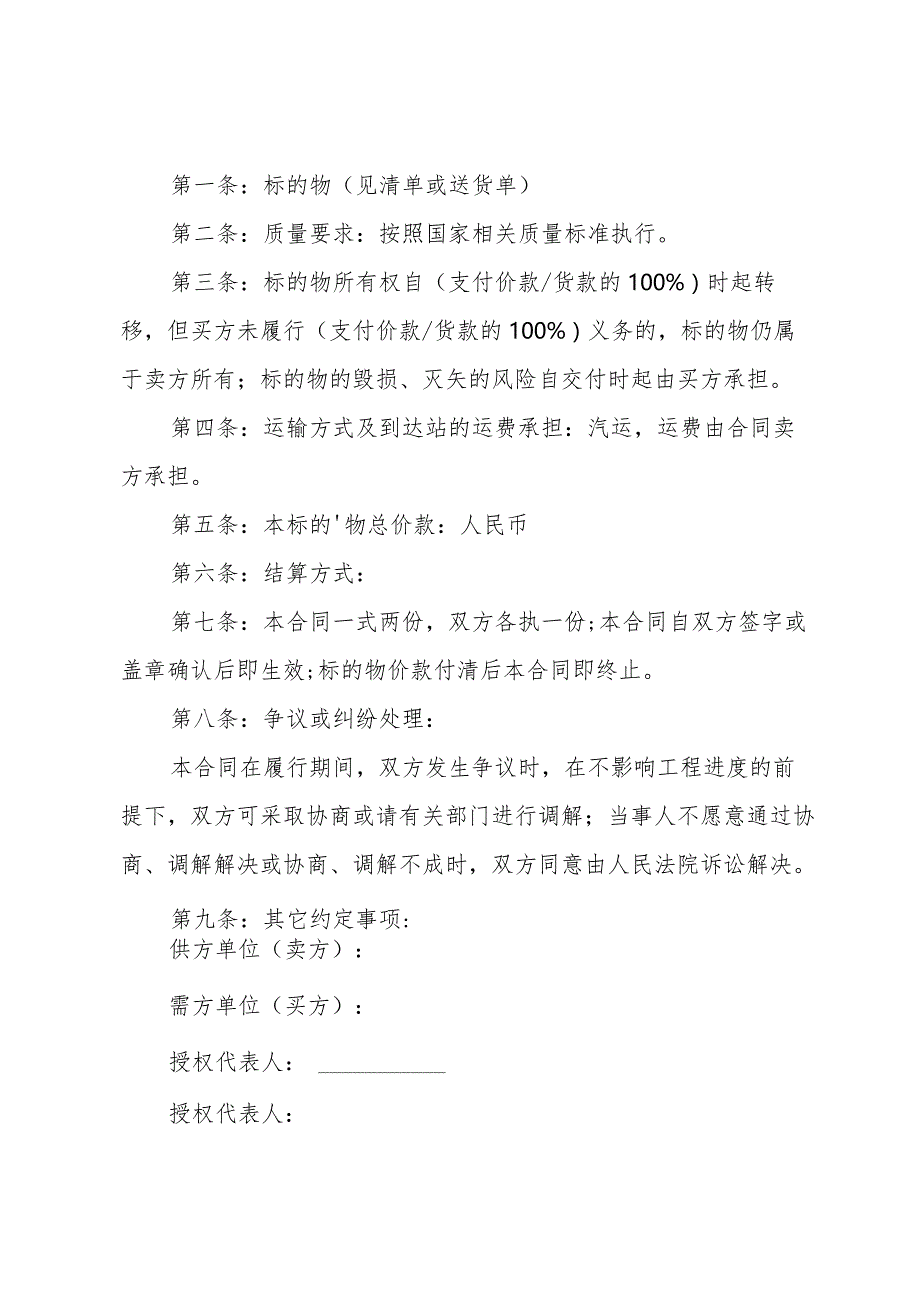 第一条：标的物（见清单或送货单）
第二条：质量要求：按照国家相关质量标准执行。
第三条：标的物所有权自（支付价款/货款的100%）时起转
移，但买方未履行（支付价款/货款的100%）义务的，标的物仍属
于卖方所有；标的物的毁损、灭失的风险自交付时起由买方承担。
第四条：运输方式及到达站的运费承担：汽运，运费由合同卖
方承担。
第五条：本标的'物总价款：人民币
第六条：结算方式：
第七条：本合同一式两份，双方各执一份;本合同自双方签字或
盖章确认后即生效;标的物价款付清后本合同即终止。
第八条：争议或纠纷处理：
本合同在履行期间，双方发生争议时，在不影响工程进度的前
提下，双方可采取协商或请有关部门进行调解；当事人不愿意通过协
商、调解解决或协商、调解不成时，双方同意由人民法院诉讼解决。
第九条：其它约定事项:
供方单位（卖方）：
需方单位（买方）：
授权代表人：___________
授权代表人：